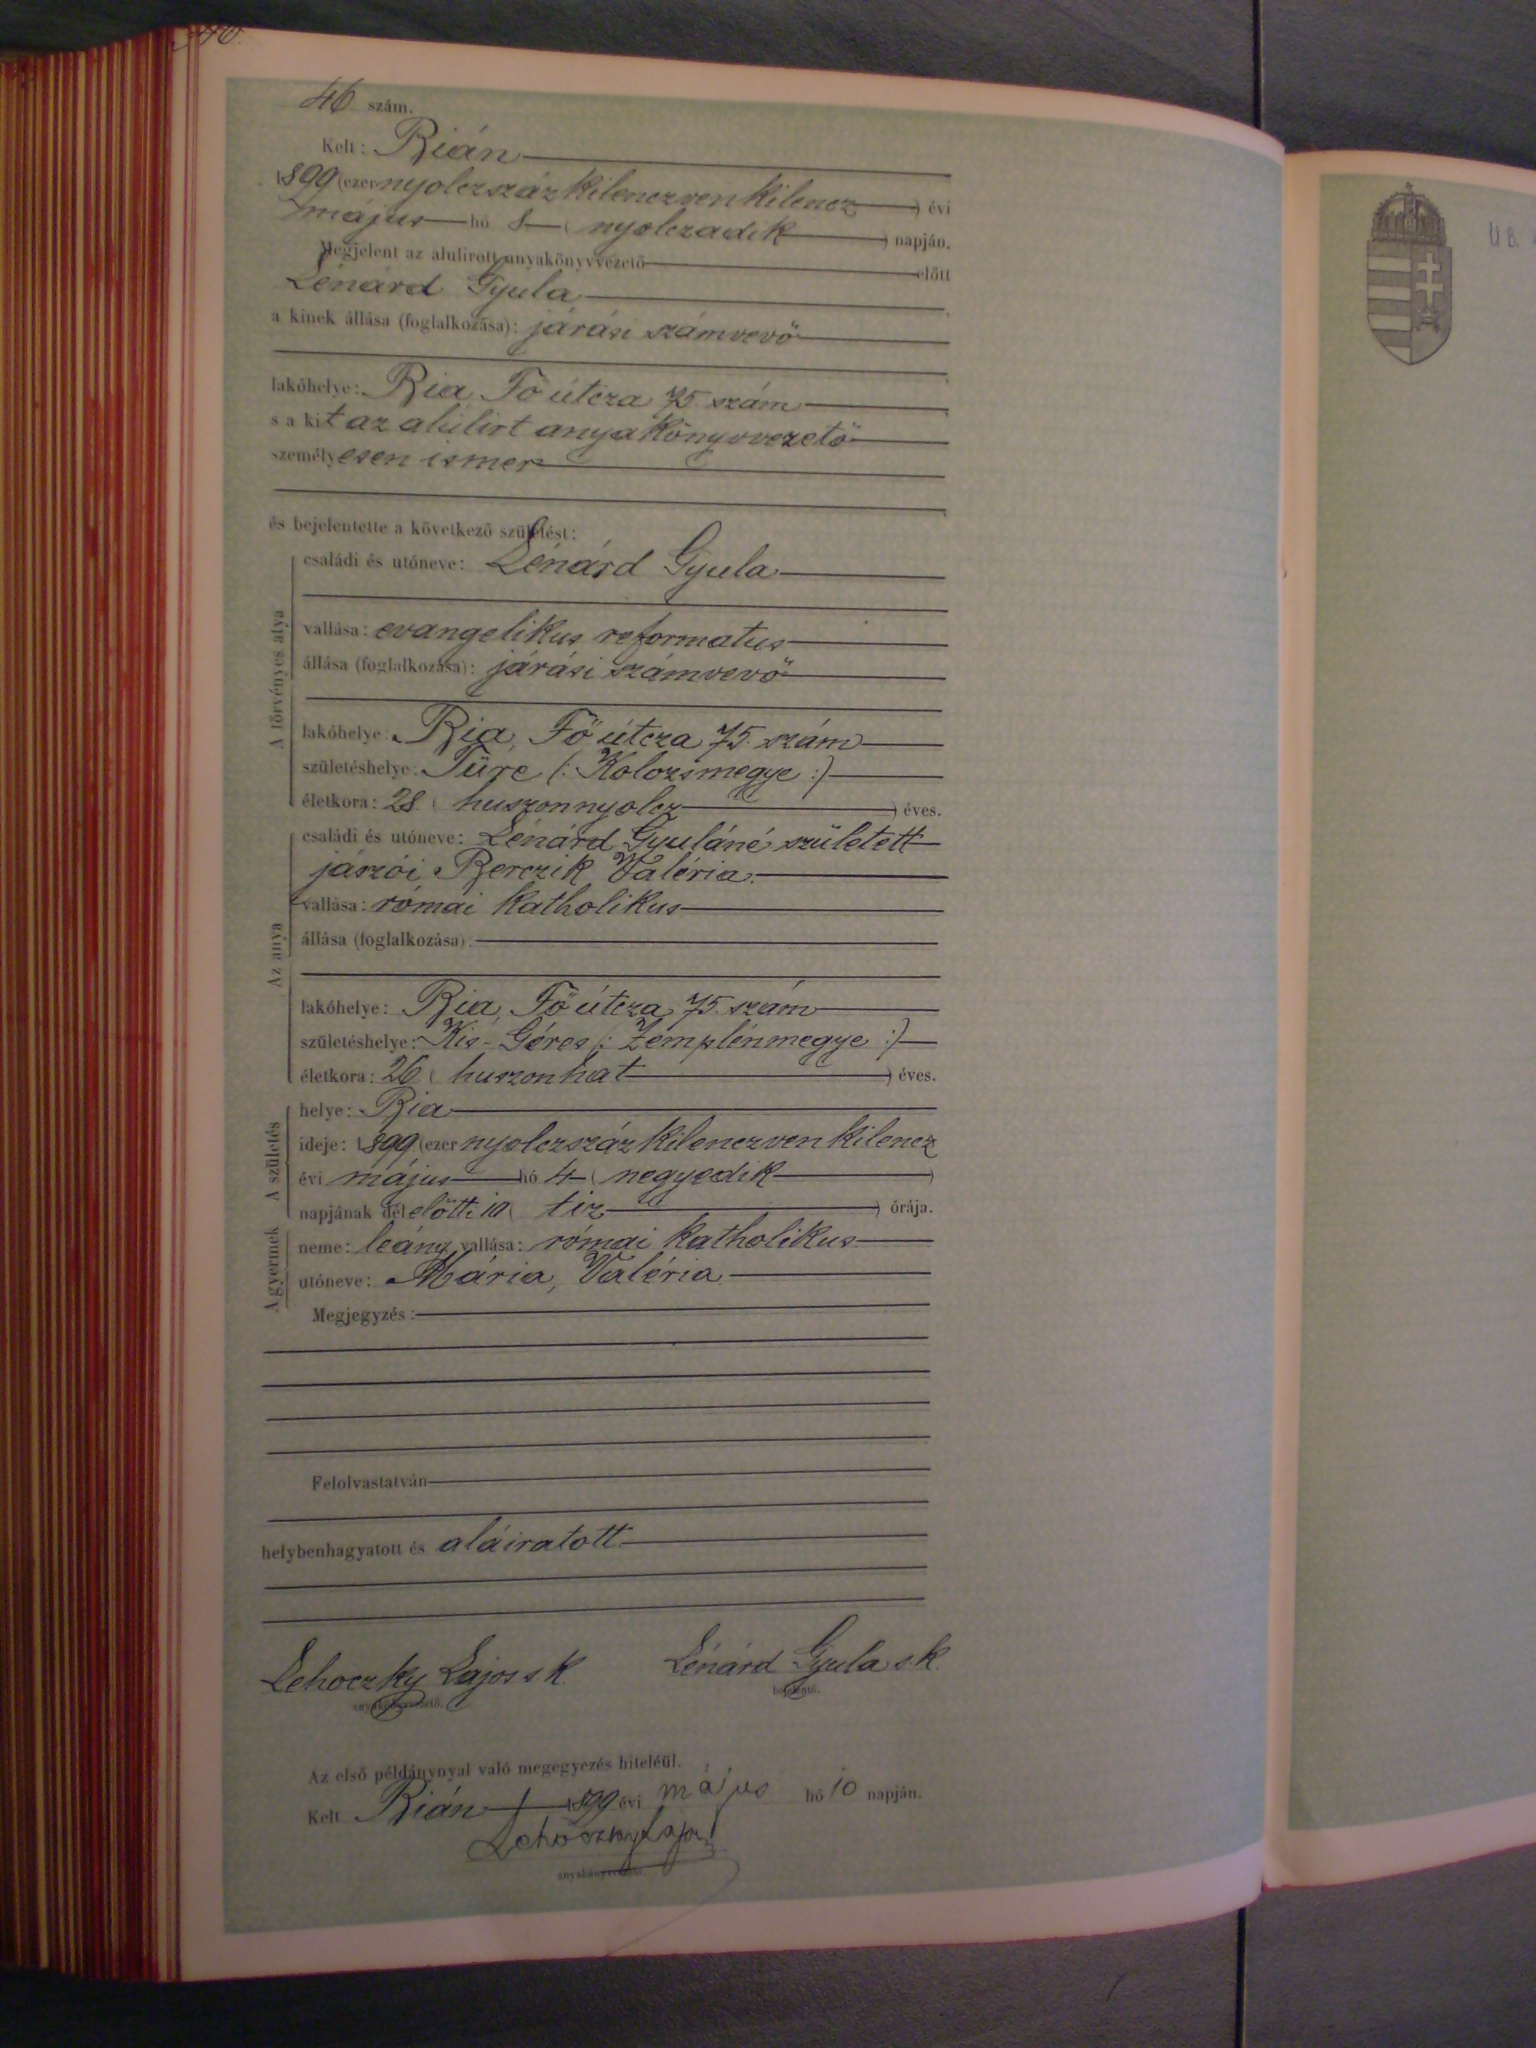 46 szám.
Kelt: Rián
1899 (ezer nyolczszáz kilenczven kilencz) évi
május hó 8 (nyolczadik) napján.
Megjelent az alulirott anyakönyvvezető előtt
Lénárd Gyula
a kinek állása (foglalkozása): járási számvevő
lakóhelye: Ria, Fő útcza 75. szám
s a kit az alúlirt anyakönyvvezető
személyesen ismer
és bejelentette a következő születést:
A törvényes atya
családi és utóneve: Lénárd Gyula
vallása: evangelikus reformatus
állása (foglalkozása): járási számvevő
lakóhelye: Ria, Fő útcza 75. szám
születéshelye: Türe (: Kolozsmegye :)
életkora: 28 (huszonnyolcz) éves.
Az anya
családi és utóneve: Lénárd Gyuláné született
jászói Berczik Valéria.
vallása: római katholikus
állása (foglalkozása):
lakóhelye: Ria, Fő útcza 75. szám
születéshelye: Kis-Géres (: Zemplénmegye :)
életkora: 26 (huszonhat) éves.
A születés
helye: Ria
ideje: 1899 (ezer nyolczszáz kilenczven kilencz
évi május hó 4 (negyedik)
napjának délelőtti 10 (tiz) órája.
A gyermek
neme: leány vallása: római katholikus
utóneve: Mária, Valéria.
Megjegyzés:
Felolvastatván
helybenhagyatott és aláiratott
Lehoczky Lajos s.k. Lénárd Gyula s.k.
anyakönyvvezető. bejelentő.
Az első példánynyal való megegyezés hiteléül.
Kelt Rián 1899 évi május hó 10 napján.
Lehoczky Lajos
anyakönyvvezető.